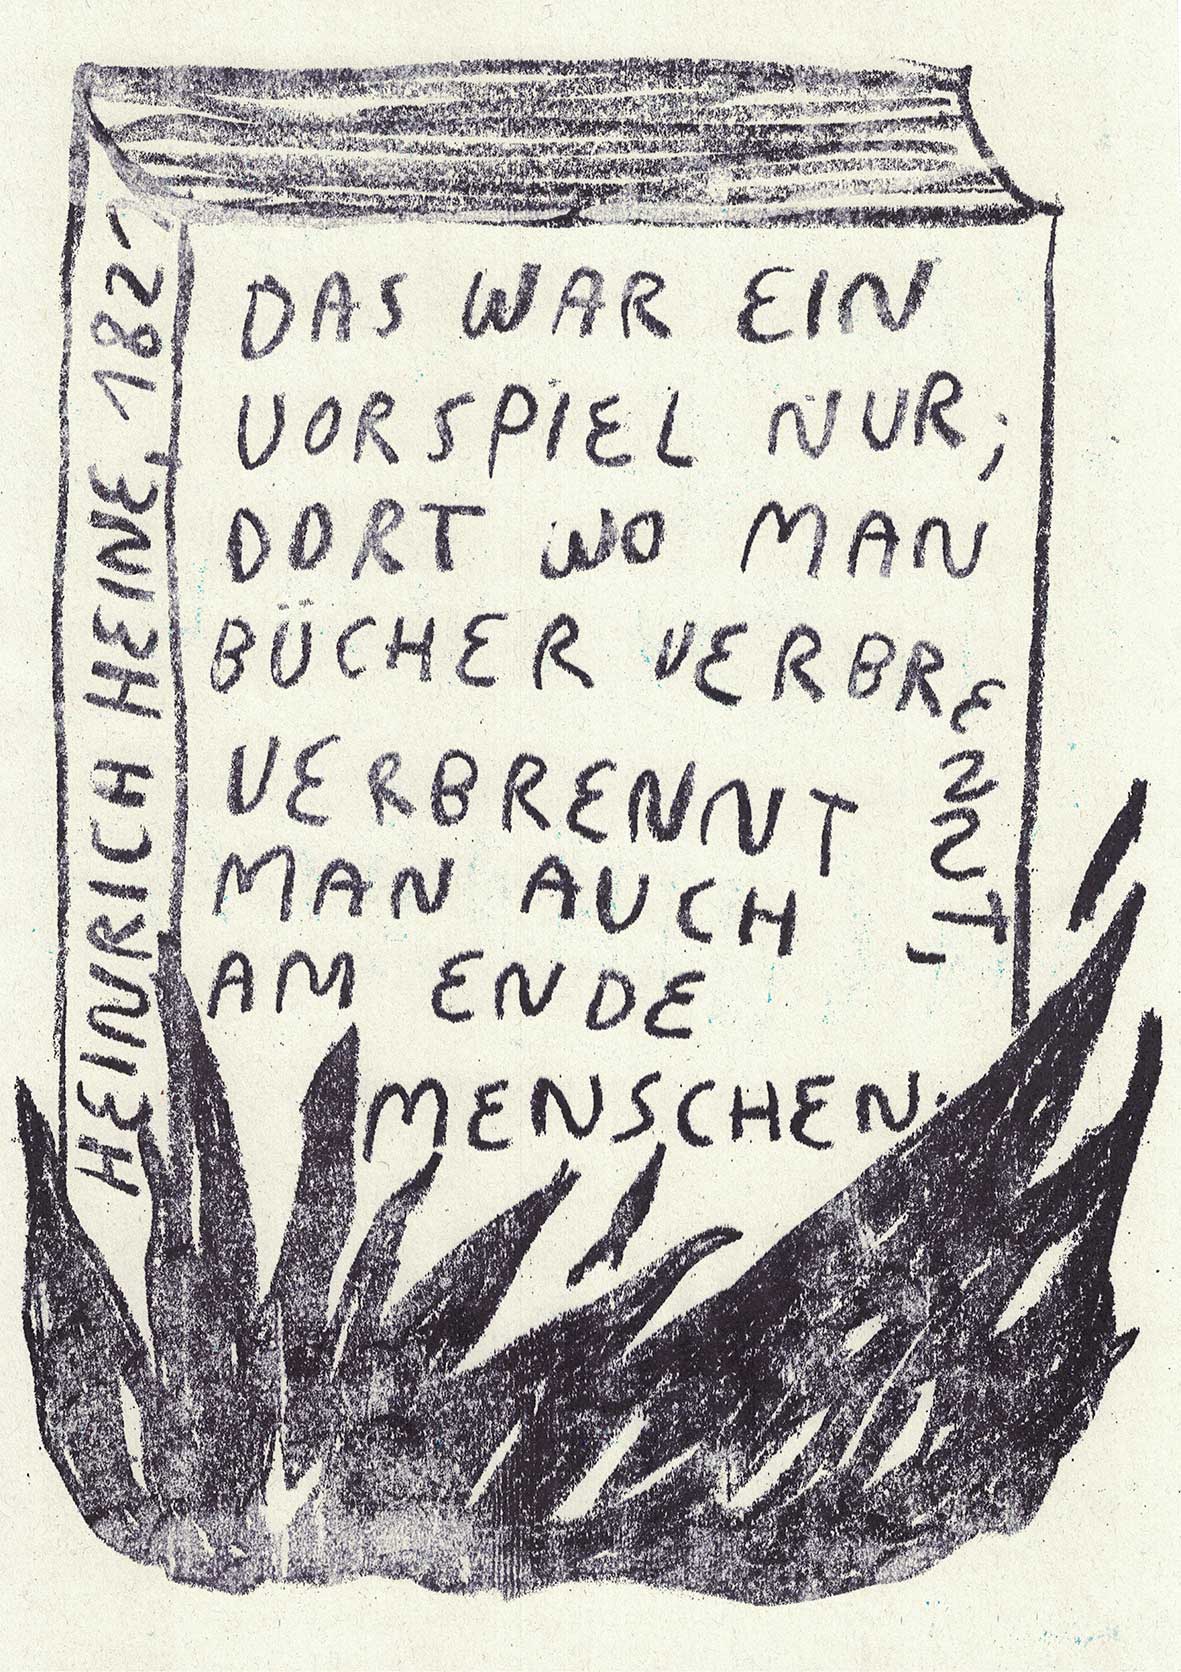 HEINRICH HEINE,
DAS WAR EIN
VORSPIEL NUR;
DORT WO MAN
BÜCHER VERBRENNT,
VERBRENNT
MAN AUCH
AM ENDE
MENSCHEN.